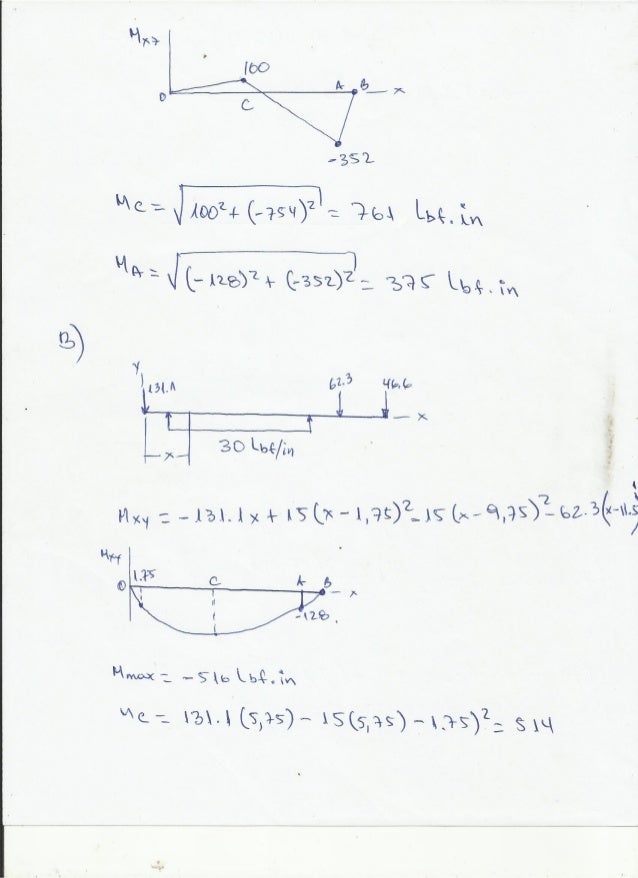 Mxz
100
O C A B x
-352
Mc = √100² + (-754)² = 761 Lbf.in
MA = √(-128)² + (-352)² = 375 Lbf.in
B)
y
131.1 62.3 46.6
x
x 30 Lbf/in
Mxy = -131.1x + 15(x-1,75)² - 15(x-9,75)² - 62.3(x-11.5)
Mxy
O 1.75 C A B x
-128.
Mmax = -516 Lbf.in
Mc = 131.1(5,75) - 15(5,75) - 1.75)² = 514